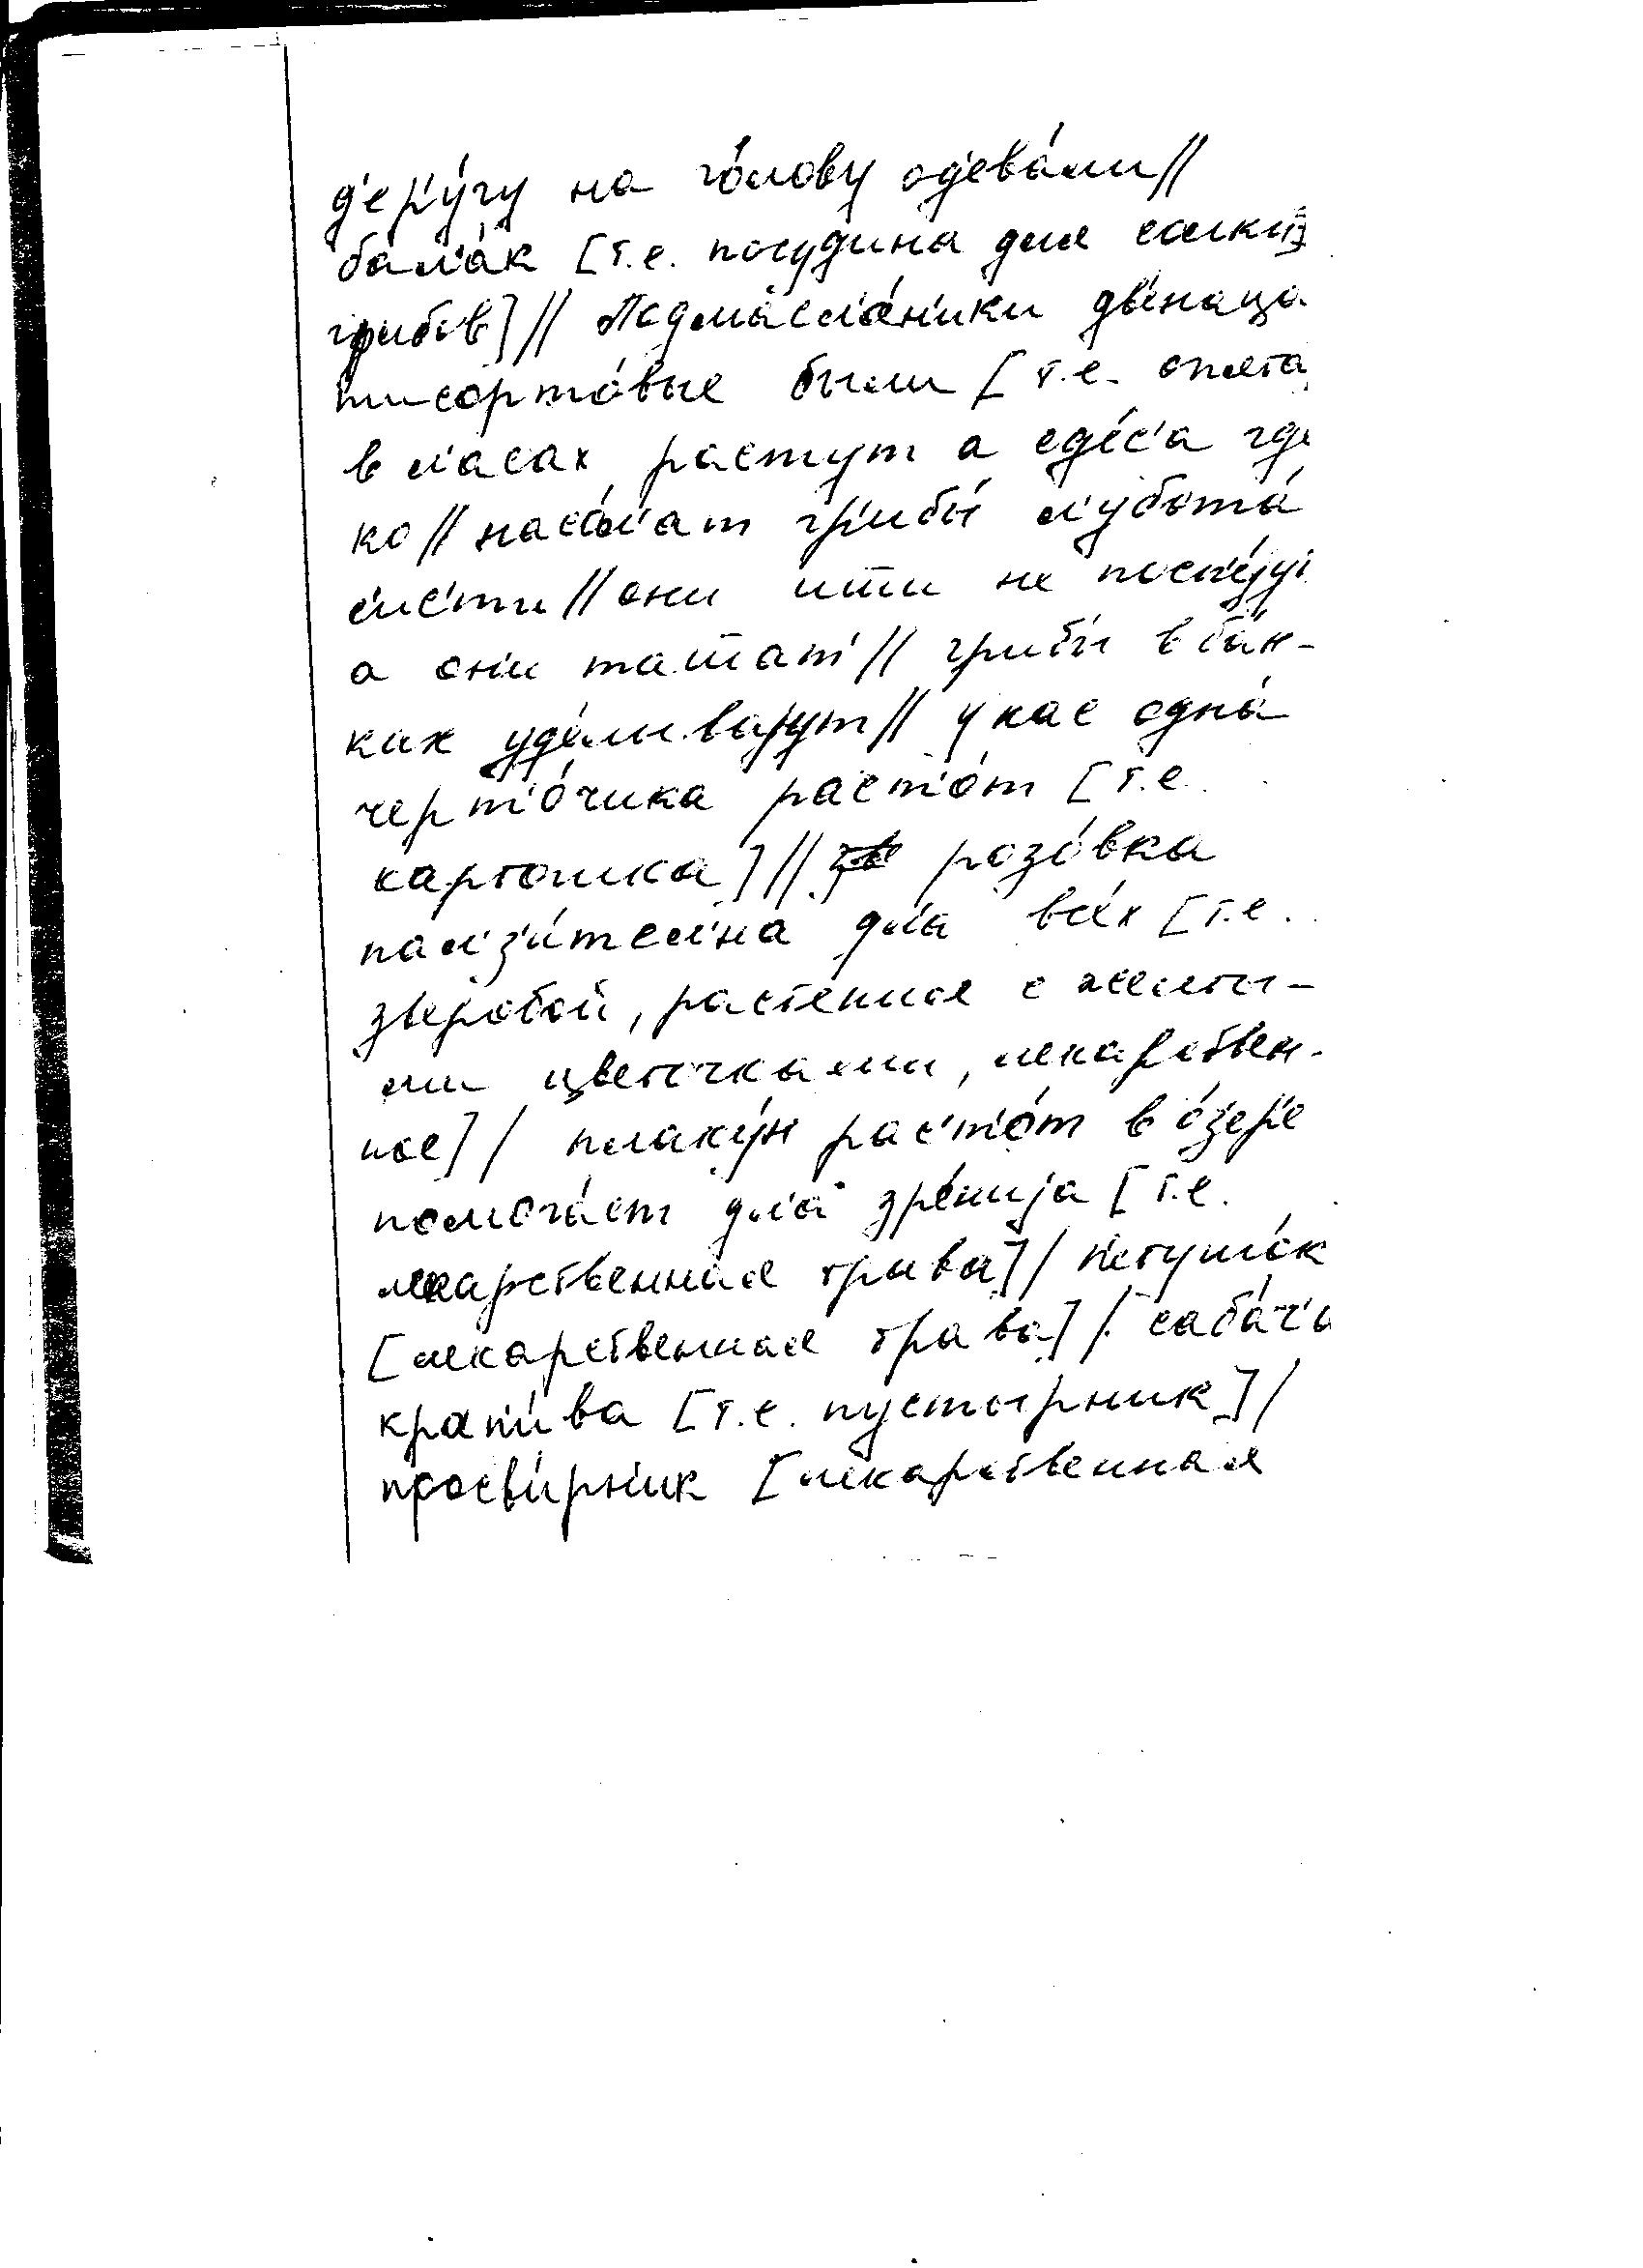 д'ер'у́гу на го́лову од'ева́ли//
бал'а́к [т.е. посудина для солки
грибов]// Подмасл'а́н'ики дв'енаца
тисорто́вые были [т.е. опята,
в л'асах растут а сд'е́с'а где
ко// насо́л'ат гр'ибы́ л'убота́
с'йе́с'т'и// они итти не посп'е́јут
а они та́ш̅ат'// грибы́ в ба́н-
ках уде́ливајут// у нас одна́
черто́чика раст'о́т [т.е.
картошка]// розо́вка
пал'з'и́тел'на дл'а вс'е́х [т.е.
зверобой, растение с желты-
ми цветочками, лекарствен-
ное]/ плаку́н рас'т'о́т в о́зер'е
помога́ет дл'а зре́нија [т.е.
лекарственная трава]/ п'етушо́к
[лекарственная трава]/ саба́ч'а
крап'и́ва [т.е. пустырник]/
просв'и́рн'ик [лекарственная